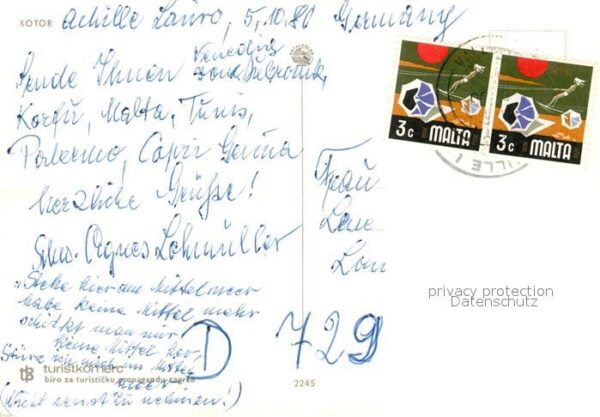 KOTOR
Achille Lauro, 5.10.80 Germany
Sende Ihnen Venedig
Dubrovnik,
Korfu, Malta, Tunis,
Palermo, Capri Genua
herzliche Grüße!
Agnes Lohmüller
Frau
"Stehe hier am Mittelmeer
habe keine Mittel mehr
schickt man mir
keine Mittel her,
Stürz ich mich ins Mittel
meer"
(Nicht ernst zu nehmen!)
D
729
3c MALTA
3c MALTA
privacy protection
Datenschutz
tb turistkomerc
biro za turističku propagandu zagreb
2245